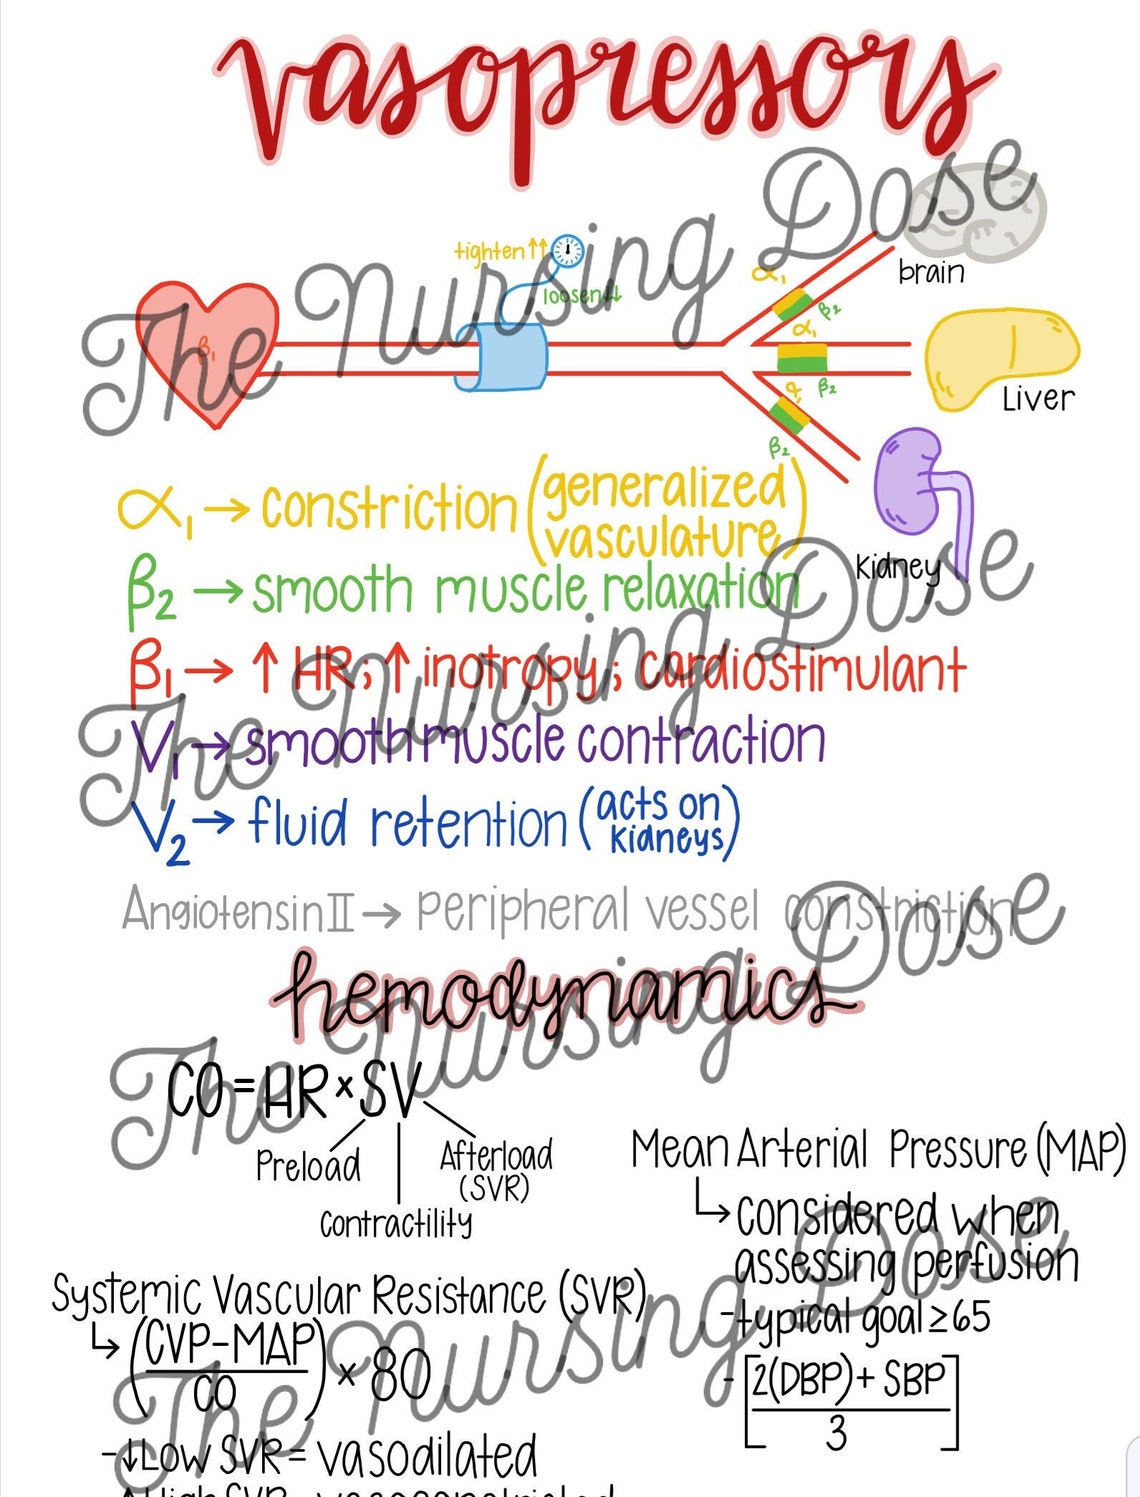 vasopressors
The Nursing Dose
tighten↑↑
loosen↓↓
β₁
α₁
β₂
α₁
β₂
α₁
β₂
brain
Liver
Kidney
α₁ → constriction (generalized vasculature)
β₂ → smooth muscle relaxation
The Nursing Dose
β₁ → ↑ HR; ↑ inotropy; cardiostimulant
V₁ → smooth muscle contraction
V₂ → fluid retention (acts on Kidneys)
Angiotensin II → peripheral vessel constriction
The Nursing Dose
hemodynamics
CO = HR × SV
Preload
Afterload
(SVR)
Contractility
Mean Arterial Pressure (MAP)
↳ considered when
assessing perfusion
- typical goal ≥ 65
- [2(DBP) + SBP
3]
Systemic Vascular Resistance (SVR)
↳ (CVP-MAP
CO) × 80
The Nursing Dose
- ↓Low SVR = vasodilated